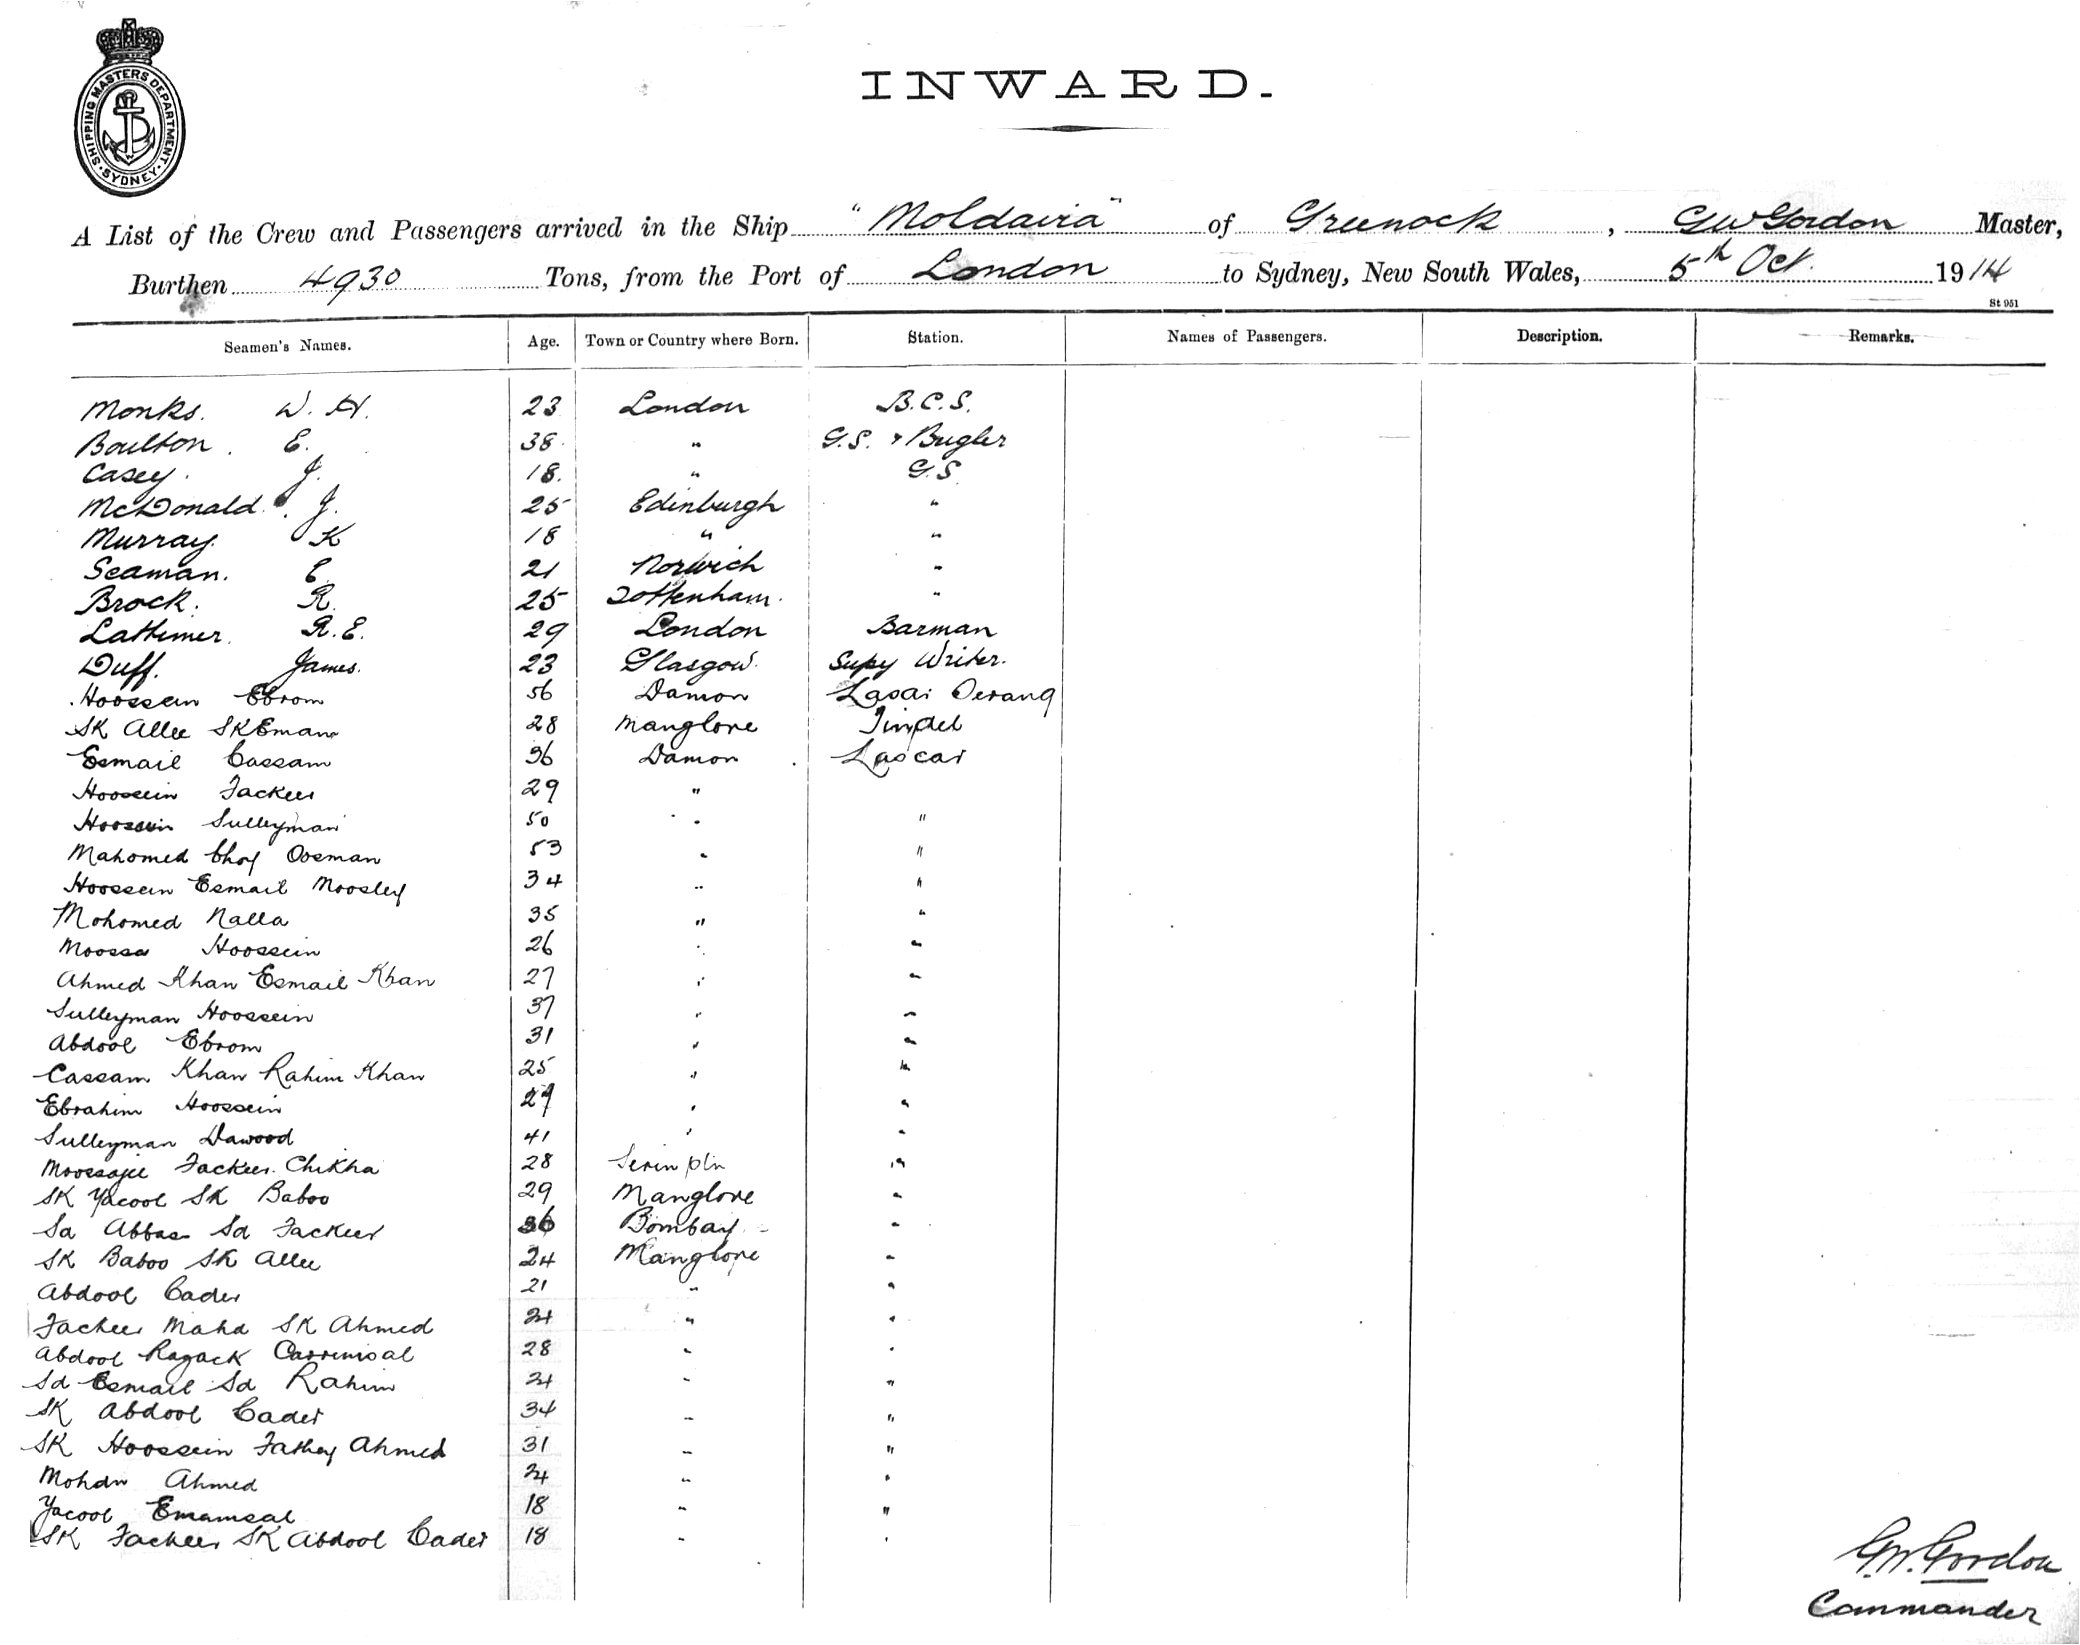 SHIPPING MASTERS DEPARTMENT. SYDNEY.
INWARD.
A List of the Crew and Passengers arrived in the Ship "Moldavia" of Greenock, GW Gordon Master,
Burthen 4930 Tons, from the Port of London to Sydney, New South Wales, 5th Oct. 1914
St 951
Seamen's Names. Age. Town or Country where Born. Station. Names of Passengers. Description. Remarks.
Monks. W. H. 23 London B.C.S.
Boulton. E. 38. " G.S. & Bugler
Casey. J. 18. " G.S.
McDonald. J. 25 Edinburgh "
Murray. K 18 " "
Seaman. E 21 Norwich "
Brock. R. 25 Tottenham. "
Lattimer. R.E. 29 London Barman
Duff. James. 23 Glasgow. Supy Writer.
Hoossein Ebrom 56 Damon Lascar Serang
SK Allee SK Eman 28 Manglore Tindel
Esmail Cassam 36 Damon Lascar
Hoossein Fackeer 29 "
Hoossein Sulleyman 50 " "
Mahomed Choy Oosman 53 " "
Hoossein Esmail Moosley 34 " "
Mohomed Nalla 35 " "
Moossa Hoossein 26 " "
Ahmed Khan Esmail Khan 27 " "
Sulleyman Hoossein 37 " "
Abdool Ebrom 31 " "
Cassam Khan Rahim Khan 25 " "
Ebrahim Hoossein 29 " "
Sulleyman Dawood 41 " "
Moossajee Fackeer Chikha 28 "
SK Yacool SK Baboo 29 Manglore "
Sd Abbas Sd Fackeer 36 Bombay "
SK Baboo SK Allee 24 Manglore "
Abdool Cader 21 " "
Fackeer Mahd SK Ahmed 24 " "
Abdool Ragack 28 " "
Sd Esmail Sd Rahim 24 " "
SK Abdool Cader 34 " "
SK Hoossein Fathey Ahmed 31 " "
Mohdn Ahmed 24 " "
Yacool Emamsal 18 " "
SK Fackeer SK Abdool Cader 18 " "
G.W. Gordon
Commander